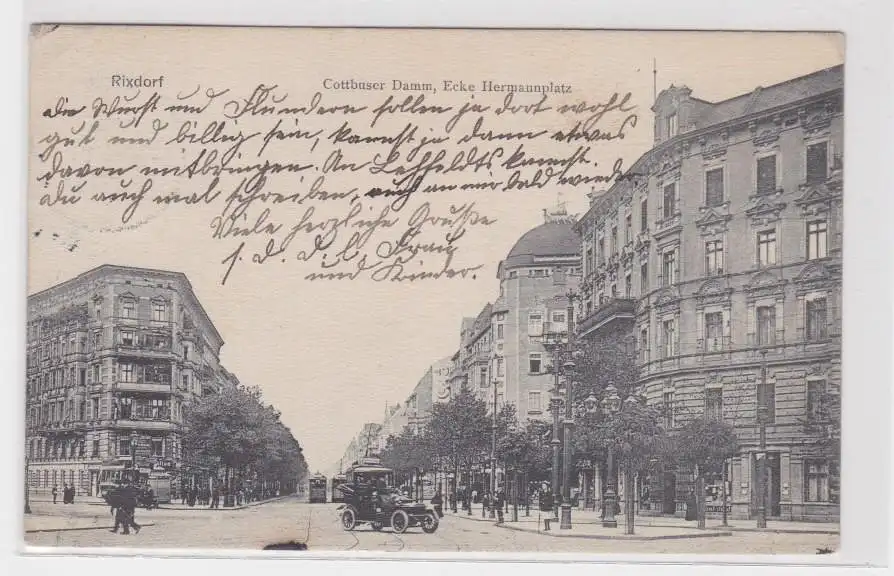 Rixdorf
Cottbuser Damm, Ecke Hermannplatz
die Wurst und Flundern sollen ja dort wohl
gut und billig sein, kannst ja dann etwas
davon mitbringen. An Lehfeldts kannst
du auch mal schreiben, auch an mir bald wieder
Viele herzliche Grüße
s. d. d. l. Frau
und Kinder.